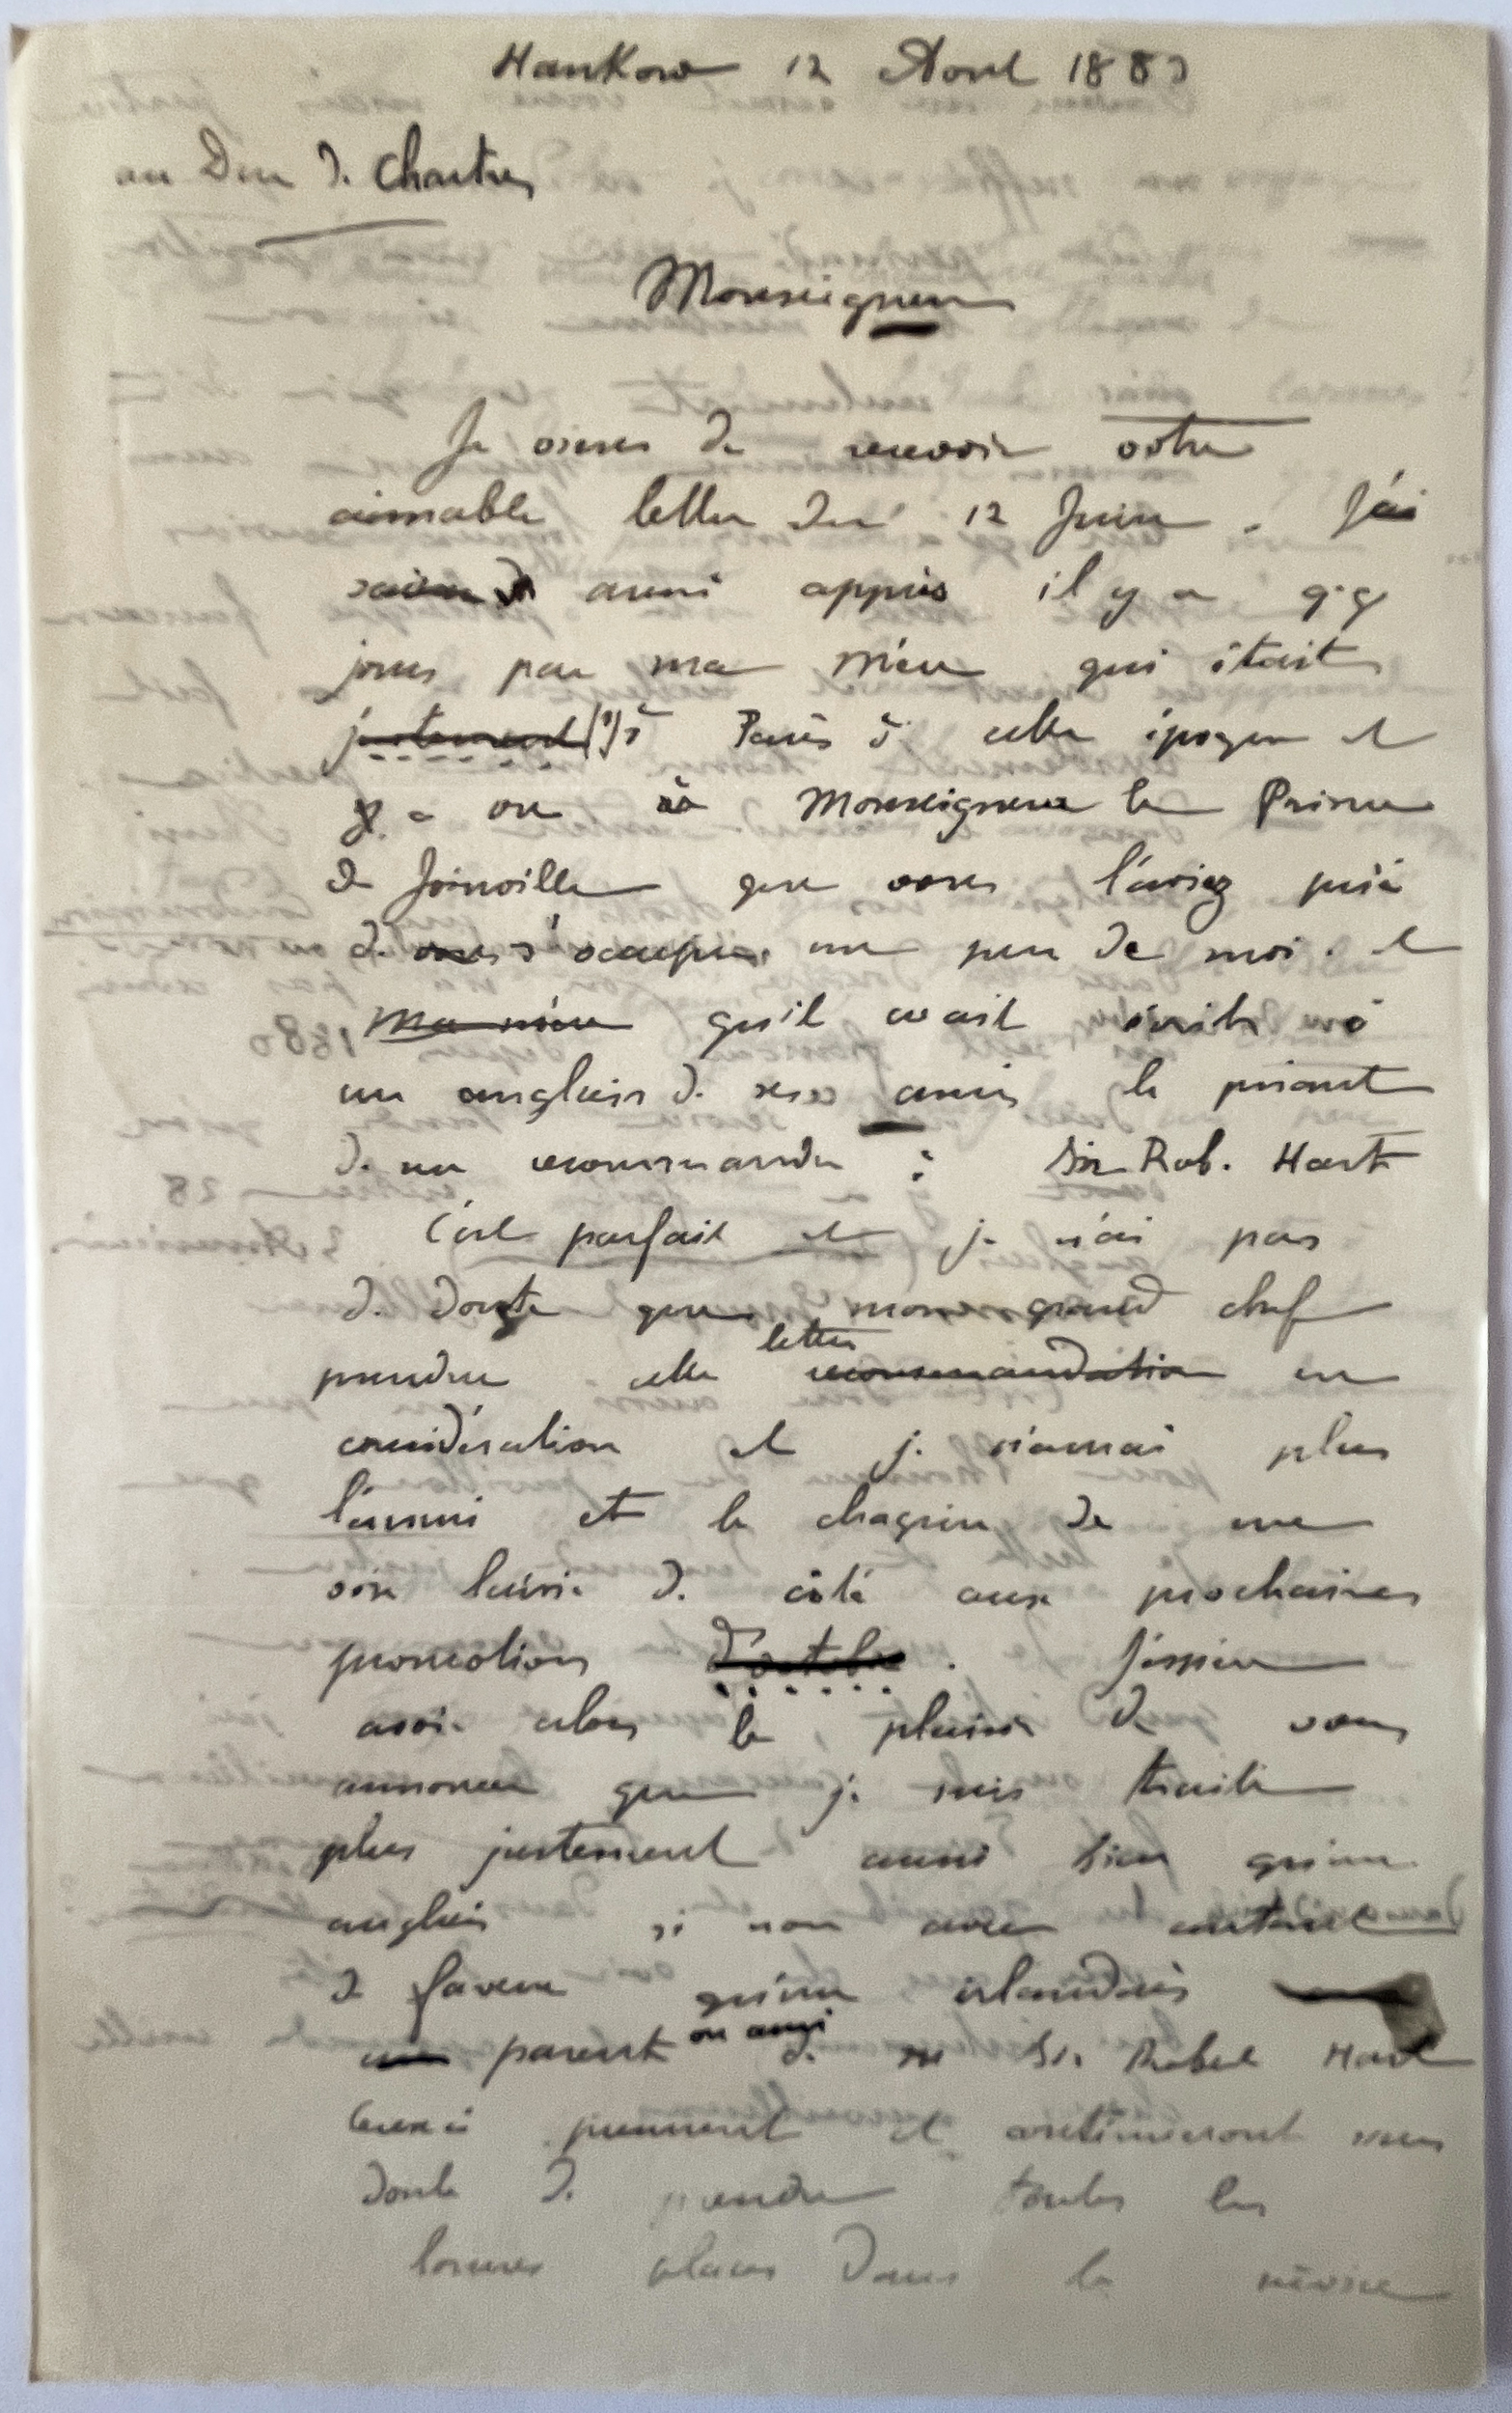 Hankow 12 Avril 188
au Duc d. Chartres
Monseigneur
Je viens de recevoir votre
aimable lettre du 12 Juin. J'ai
aussi appris il y a q.q
jours par ma mère qui était
justement à Paris à cette époque et
a vu Monseigneur le Prince
de Joinville que vous l'aviez prié
d. vous s'occuper un peu de moi. et
ma mère qu'il avait écrit à
un anglais d. ses amis le priant
d. me recommander à Sir Rob. Hart
C'est parfait et j. n'ai pas
d. doute que mon grand chef
prendra cette recommandation lettre en
considération et j. n'aurai plus
l'ennui et le chagrin de me
voir laissé d. côté aux prochaines
promotions d'octobre. J'espère
avoir alors le plaisir de vous
annoncer que j. suis traité
plus justement aussi bien qu'un
anglais si non avec autant
de faveur qu'un irlandais
un parent ou ami d. Sir Robert Hart
Ceux ci prennent et continueront sans
doute d. prendre toutes les
bonnes places dans le service